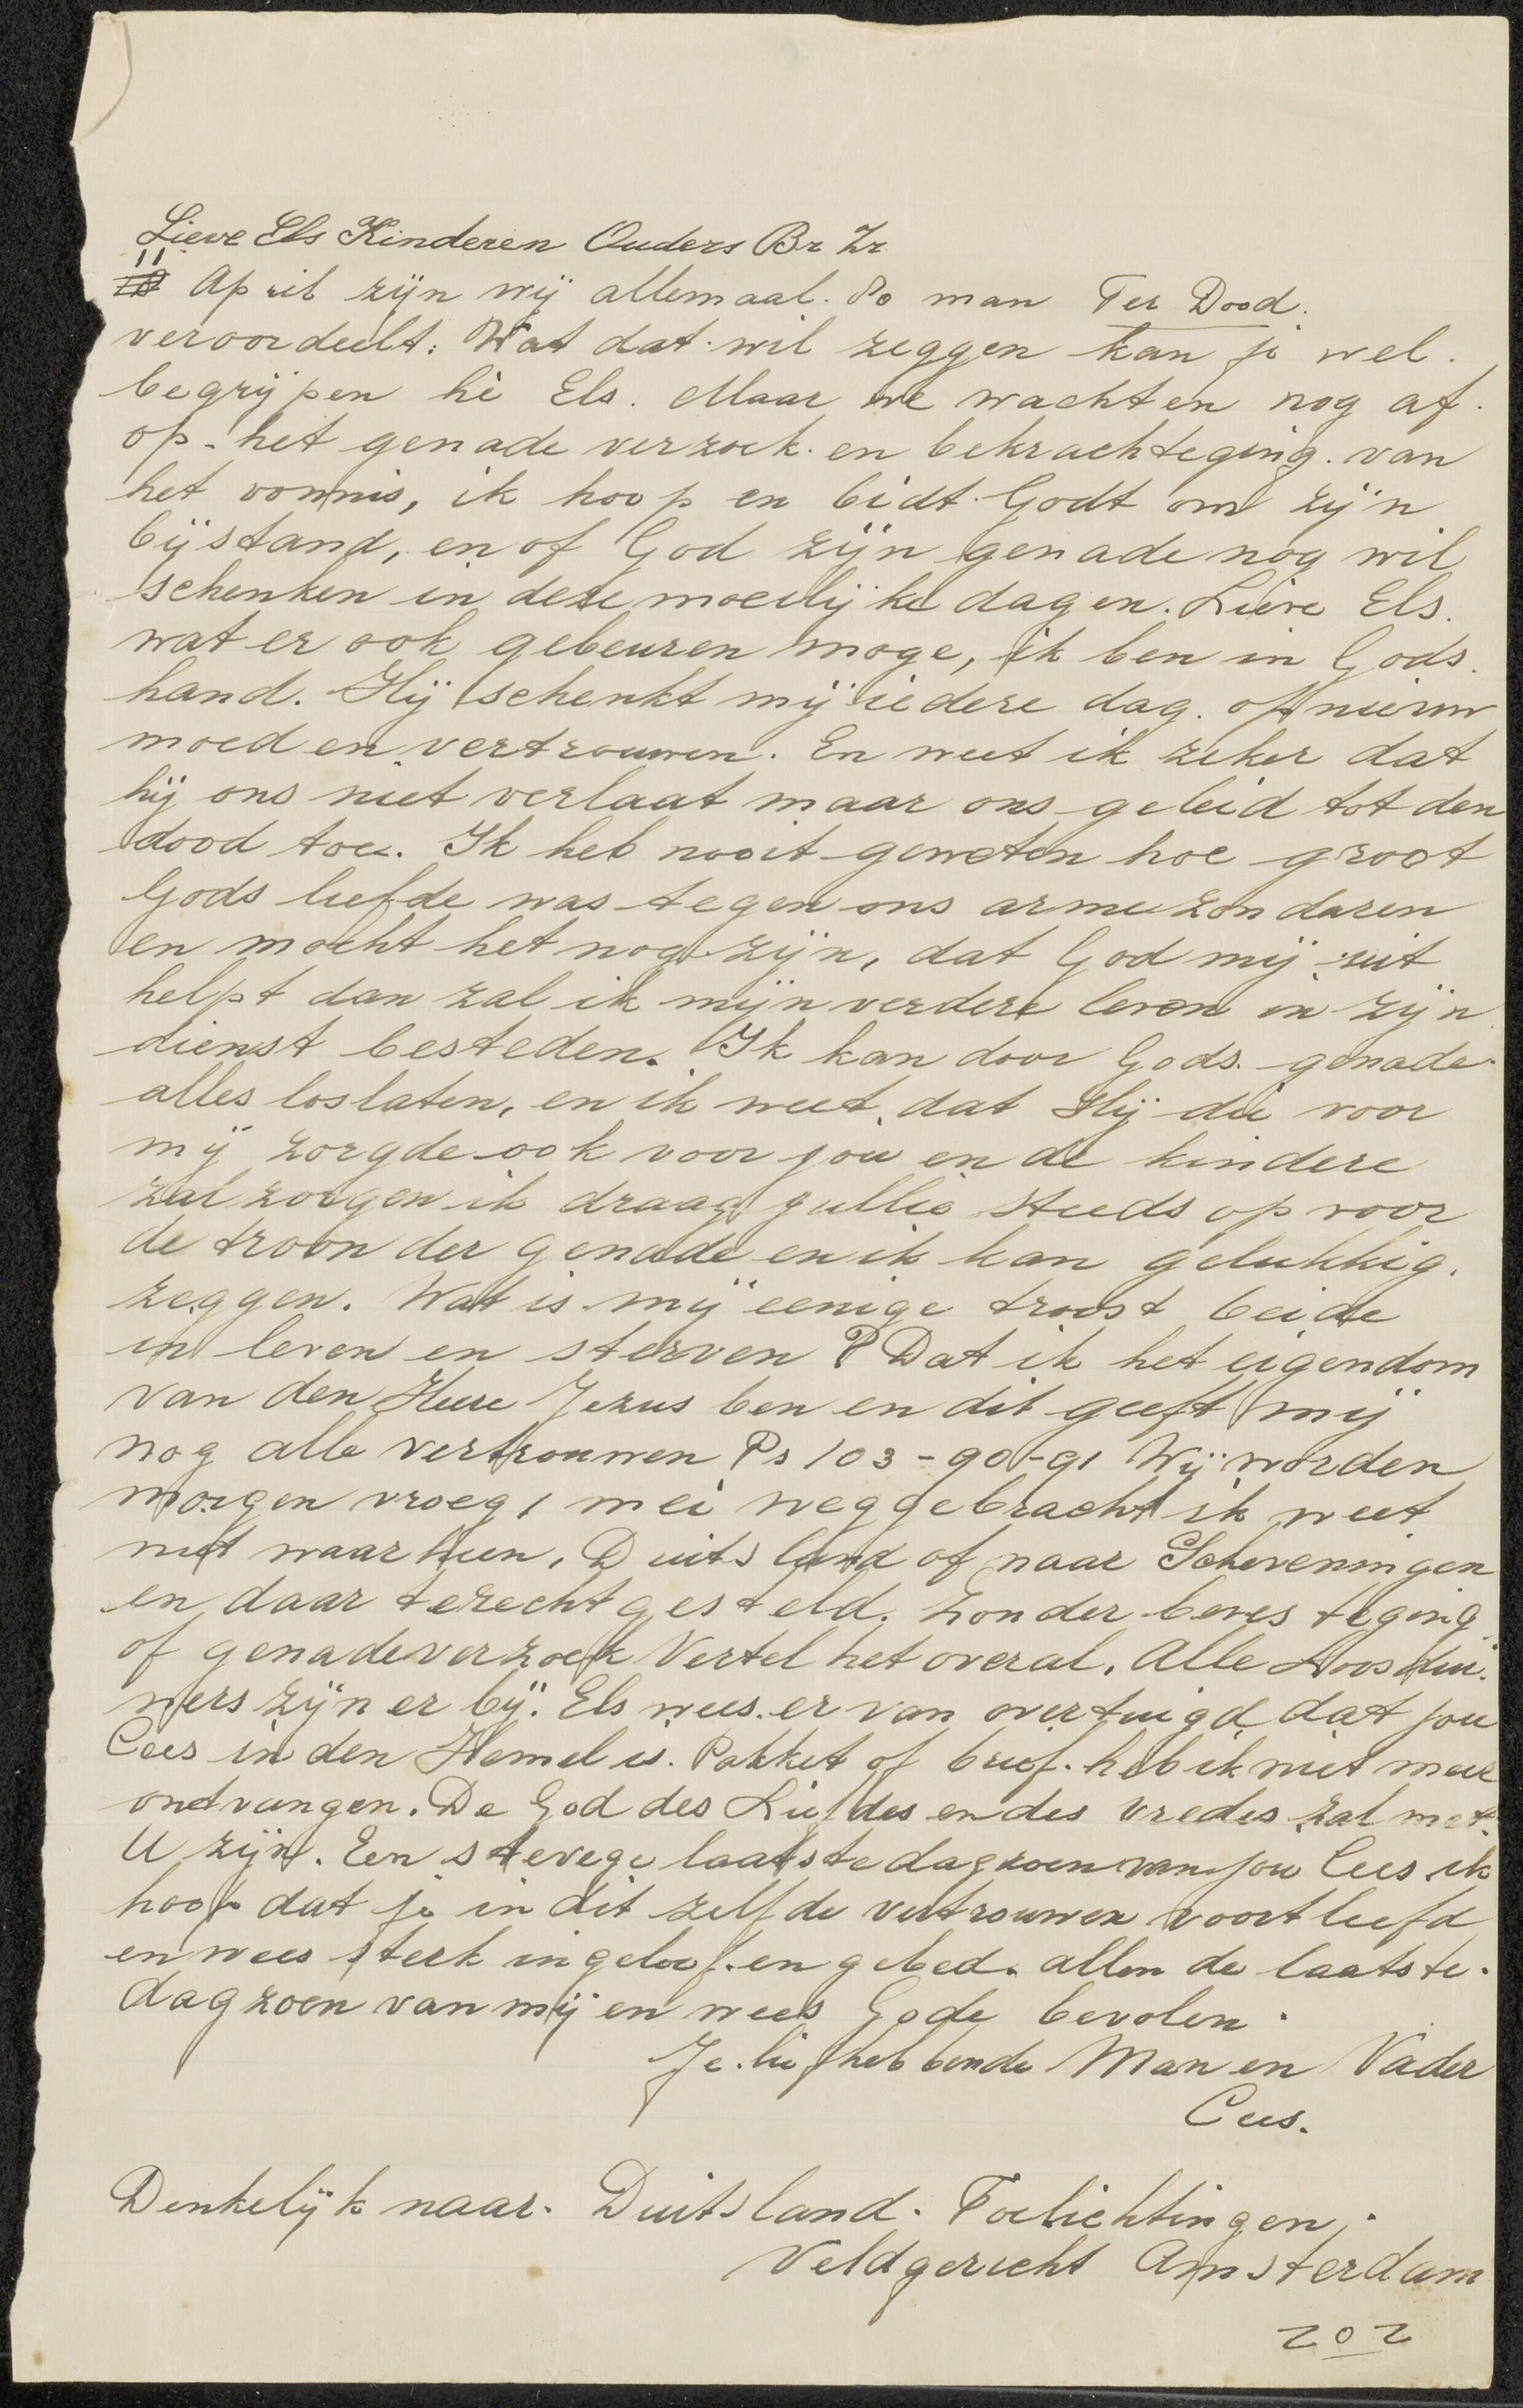 Lieve Els Kinderen Ouders Br Zr
11
April zijn wij allemaal. 80 man Ter Dood.
veroordeelt: Wat dat wil zeggen kan je wel.
begrijpen hè Els. Maar we wachten nog af.
op het genade verzoek en bekrachteging van
het vonnis, ik hoop en bidt Godt om zijn
bijstand, en of God zijn genade nog wil
schenken in deze moeilijke dagen. Lieve Els.
wat er ook gebeuren moge, ik ben in Gods.
hand. Hij schenkt mij iedere dag. opnieuw
moed en vertrouwen. En weet ik zeker dat
hij ons niet verlaat maar ons geleid tot den
dood toe. Ik heb nooit geweten hoe groot
Gods liefde was tegen ons arme zondaren
en mocht het nog zijn, dat God mij uit
helpt dan zal ik mijn verdere leven in zijn
dienst besteden. Ik kan door Gods. genade
alles loslaten, en ik weet dat Hij die voor
mij zorgde ook voor jou en de kindere
zal zorgen ik draag jullie steeds op voor
de troon der genade en ik kan gelukkig.
zeggen. Wat is mij eenige troost beide
in leven en sterven ? Dat ik het eigendom
van den Heere Jezus ben en dit geeft mij
nog alle vertrouwen Ps 103-90-91 Wij worden
morgen vroeg 1 mei weggebracht ik weet
niet waar heen, Duitsland of naar Scheveningen
en daar terechtgesteld. Zonder bevesteging
of genadeverzoek Vertel het overal. Alle Loosdui.
ners zijn er bij. Els wees er van overtuigd dat jou
Cees in den Hemel is. Pakket of brief. heb ik niet meer
ontvangen. De God des Liefdes en des vredes zal met
U zijn. Een stevege laatste dagzoen van jou Cees ik
hoop dat je in dit zelfde vertrouwen voort leefd
en wees sterk in geloof en gebed. allen de laatste.
dagzoen van mij en wees Gode bevolen.
Je liefhebbende Man en Vader
Cees.
Denkelijk naar. Duitsland. Toelichtingen.
Veldgericht Amsterdam
ZOZ